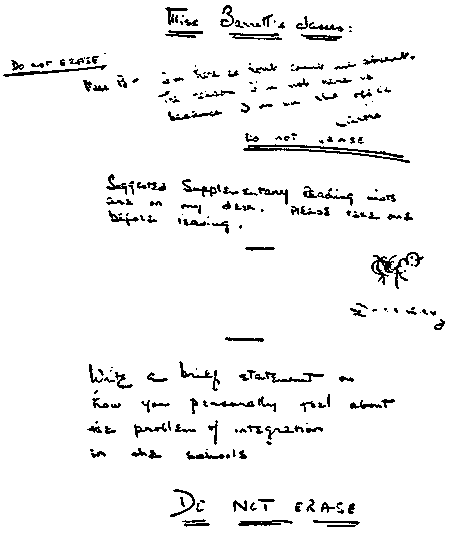 Miss Barrett's classes:
DO NOT ERASE
I'm here
The reason I'm not here is
because I'm in the office
DO NOT ERASE
Suggested Supplementary Reading Lists
are on my desk. Please take one
before leaving.
Write a brief statement on
how you personally feel about
the problem of integration
in the schools
DO NOT ERASE